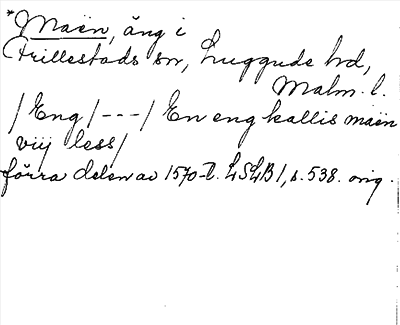 *Maën, äng i
Frillestads sn, Luggude hd,
Malm. l.
/Eng/---/ En eng kallis maën
vij less/
förra delen av 1570-t. LSLB 1, s. 538. orig.